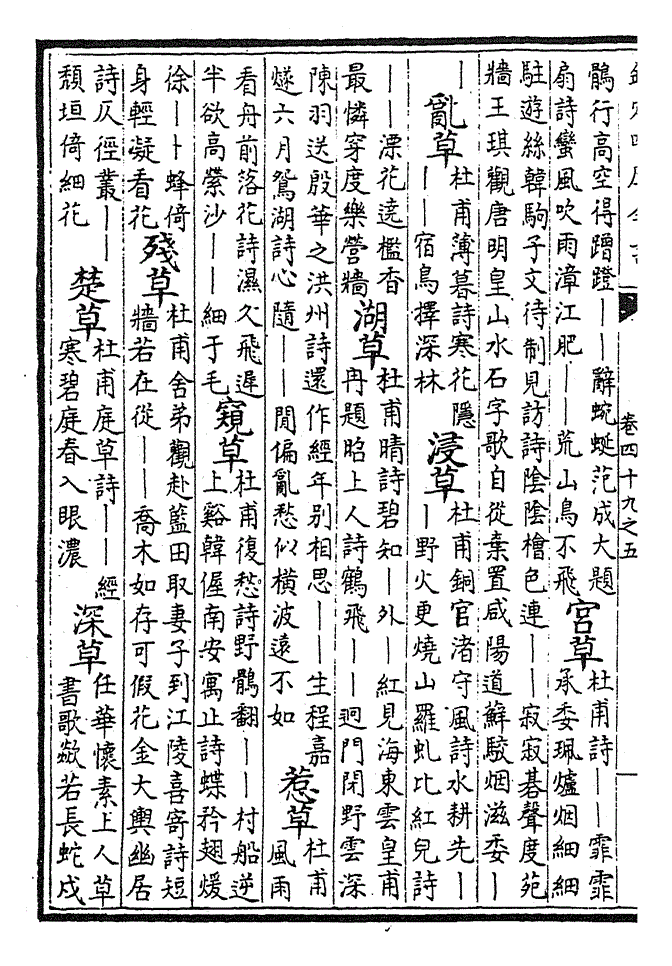 欽定四庫全書
卷四十九之五
鶻行高空得蹭蹬——辭蜿蜒范成大題
扇詩蠻風吹雨漳江肥——荒山鳥不飛
宮草
杜甫詩——霏霏
承委珮爐烟細細
駐遊絲韓駒子文待制見訪詩陰陰檜色連——寂寂碁聲度苑
牆王琪觀唐明皇山水石字歌自從棄置咸陽道蘇駮烟滋委—
—
亂草
杜甫薄暮詩寒花隱
——宿鳥擇深林
浸草
杜甫銅官渚守風詩水耕先—
—野火更燒山羅虬比紅兒詩
——漂花遶檻香
最憐穿度樂營牆
湖草
杜甫晴詩碧知—外—紅見海東雲皇甫
冉題昭上人詩鶴飛——迥門閉野雲深
陳羽送殷華之洪州詩還作經年别相思——生程嘉
燧六月鴛湖詩心隨——閒偏亂愁似橫波遠不如
惹草
杜甫
風雨
看舟前落花詩濕久飛遲
半欲高縈沙——細于毛
窺草
杜甫復愁詩野鶻翻——村船逆
上谿韓偓南安寓止詩蝶矜翅煖
徐——卜蜂倚
身輕凝看花
殘草
杜甫舍弟觀赴藍田取妻子到江陵喜寄詩短
牆若在從——喬木如存可假花金大輿幽居
詩仄徑叢——
頹垣倚細花
楚草
杜甫庭草詩——經
寒碧庭春入眼濃
深草
任華懷素上人草
書歌欻若長蛇戍